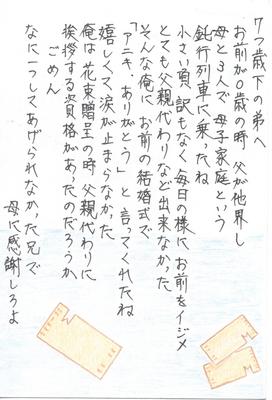 7つ歳下の弟へ
お前が0歳の時 父が他界し
母と3人で 母子家庭という
鈍行列車に乗ったね
小さい頃 訳もなく毎日の様に お前をイジメ
とても父親代わりなど出来なかった
そんな俺に お前の結婚式で
「アニキ、ありがとう」と言ってくれたね
嬉しくて涙が止まらなかった
俺は花束贈呈の時 父親代わりに
挨拶する資格があったのだろうか
ごめん
なに一つしてあげられなかった兄で
母に感謝しろよ